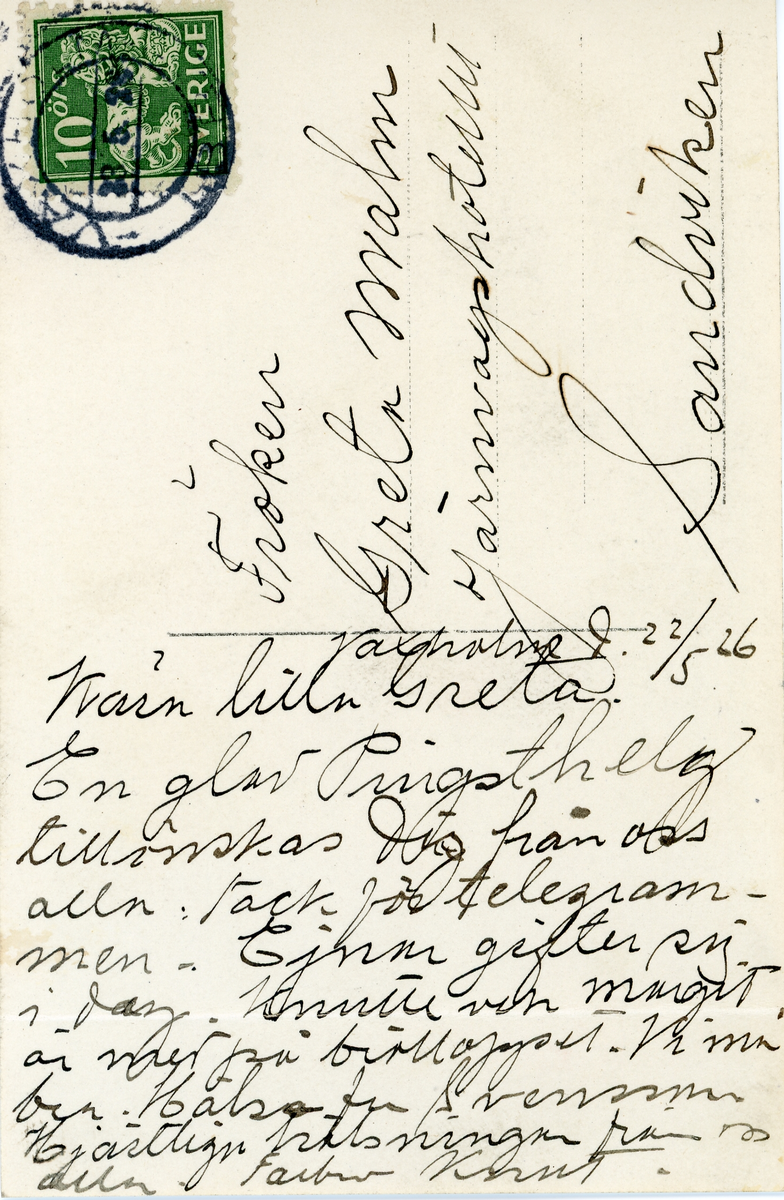 10 öre
SVERIGE
Fröken
Greta Walm
Järnvägshotellet
Sandviken
Vaxholm d. 22/5 26
Kära lilla Greta.
En glad Pingsthelg
tillönskas Dig från oss
alla. Tack för telegram-
men. Ejnar gifter sig
i dag. Knutte och Margit
är med på bröllopet. Vi må
bra. Hälsa fru Svensson
Hjärtliga hälsningar från oss
alla. Farbror Knut.